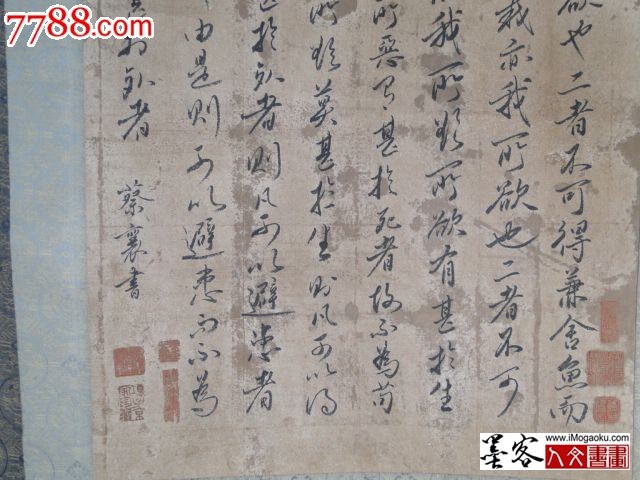 7788.com
欲也二者不可得兼舍魚而
亦我所欲也二者不可
我所欲所欲有甚於生
所惡有甚於死者故不為苟
所欲莫甚於生則凡可以得
甚於死者則凡可以避患者
由是則可以避患而不為
於死者
蔡襄書
墨客
www.iMogaoku.com
人文書畫